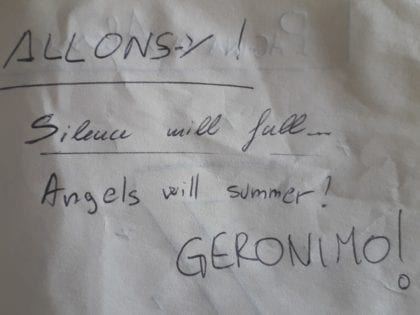 ALLONS-Y!
Silence will fall...
Angels will summer!
GERONIMO!